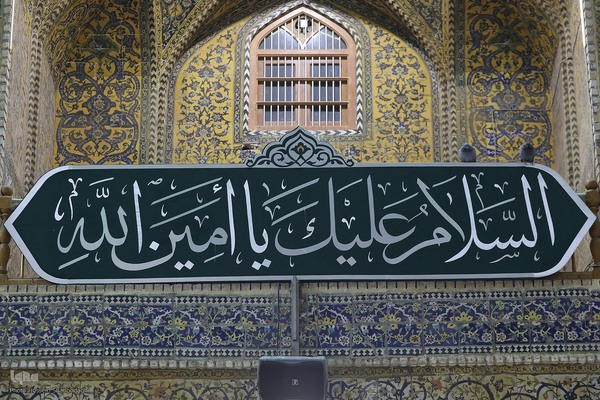 السَّلَامُ عَلَيْكَ يَا أَمِينَ اللّٰهِ